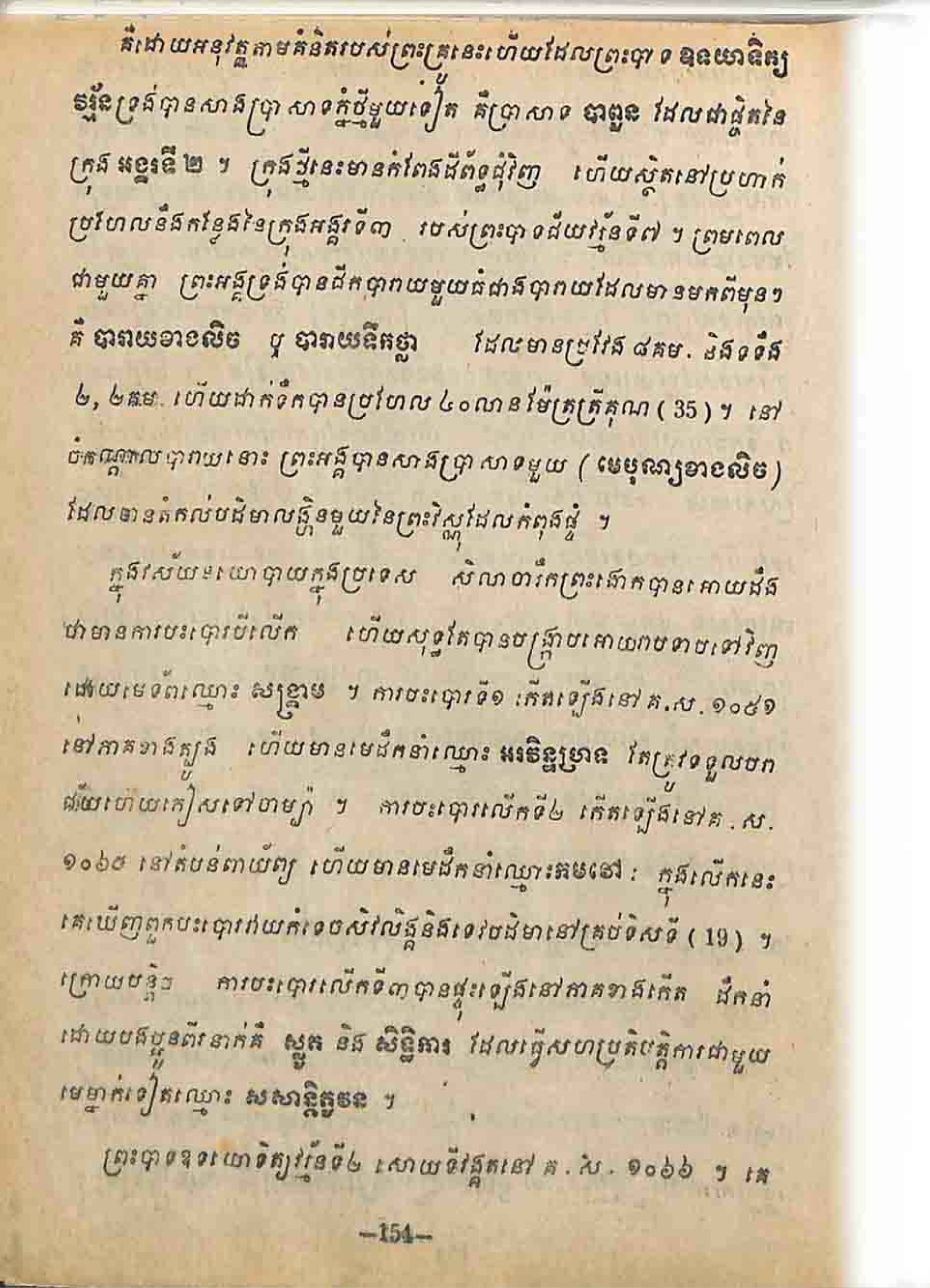 គឺដោយអនុវត្តតាមគំនិតរបស់ព្រះគ្រូនេះហើយដែលព្រះបាទ ឧទយាទិត្យ
វរ្ម័នទ្រង់បានសាងប្រាសាទភ្នំថ្មីមួយទៀត គឺប្រាសាទ បាពួន ដែលជាផ្ចិតនៃ
ក្រុង អង្គរទី២ ។ ក្រុងថ្មីនេះមានកំពែងដីព័ទ្ធជុំវិញ ហើយស្ថិតនៅប្រហាក់
ប្រហែលនឹងកន្លែងនៃក្រុងអង្គរទី៣ របស់ព្រះបាទជ័យវរ្ម័នទី៧ ។ ព្រមពេល
ជាមួយគ្នា ព្រះអង្គទ្រង់បានជីកបារាយមួយធំជាងបារាយដែលមានមកពីមុនៗ
គឺ បារាយខាងលិច ឬ បារាយទឹកថ្លា ដែលមានប្រវែង ៨គម. និងទទឹង
២,២គម. ហើយដាក់ទឹកបានប្រហែល ៤០លានម៉ែត្រត្រីគុណ ( 35 ) ។ នៅ
ចំកណ្ដាលបារាយនោះ ព្រះអង្គបានសាងប្រាសាទមួយ ( មេបុណ្យខាងលិច )
ដែលមានតំកល់បដិមាលង្ហិនមួយនៃព្រះវិស្ណុដែលកំពុងផ្ទំ ។
ក្នុងវស័យនយោបាយក្នុងប្រទេស សិលាចារឹកព្រះងោកបានអោយដឹង
ថាមានការបះបោរបីលើក ហើយសុទ្ធតែបានបង្ក្រាបអោយរាបទាបទៅវិញ
ដោយមេទ័ពឈ្មោះ សង្គ្រាម ។ ការបះបោរទី១ កើតឡើងនៅ គ.ស. ១០៥១
នៅភាគខាងត្បូង ហើយមានមេដឹកនាំឈ្មោះ អរវិន្ទហ្រាទ តែត្រូវទទួលបរា
ជ័យហើយភៀសទៅចាម្ប៉ា ។ ការបះបោរលើកទី២ កើតឡើងនៅគ.ស.
១០៦៥ នៅតំបន់ពាយ័ព្យ ហើយមានមេដឹកនាំឈ្មោះកមដៅ : ក្នុងលើកនេះ
គេឃើញពួកបះបោរវាយកំទេចសិវលិង្គនិងទេវបដិមានៅគ្រប់ទិសទី ( 19 ) ។
ក្រោយបន្តិច ការបះបោរលើកទី៣បានផ្ទុះឡើងនៅភាគខាងកើត ដឹកនាំ
ដោយបងប្អូនពីរនាក់គឺ ស្លូត និង សិទ្ធិការ ដែលធ្វើសហប្រតិបត្តិការជាមួយ
មេម្នាក់ទៀតឈ្មោះ សសាន្តិភូវន ។
ព្រះបាទឧទយោទិត្យវរ្ម័នទី២ សោយទីវង្គតនៅ គ.ស. ១០៦៦ ។ គេ
—154—